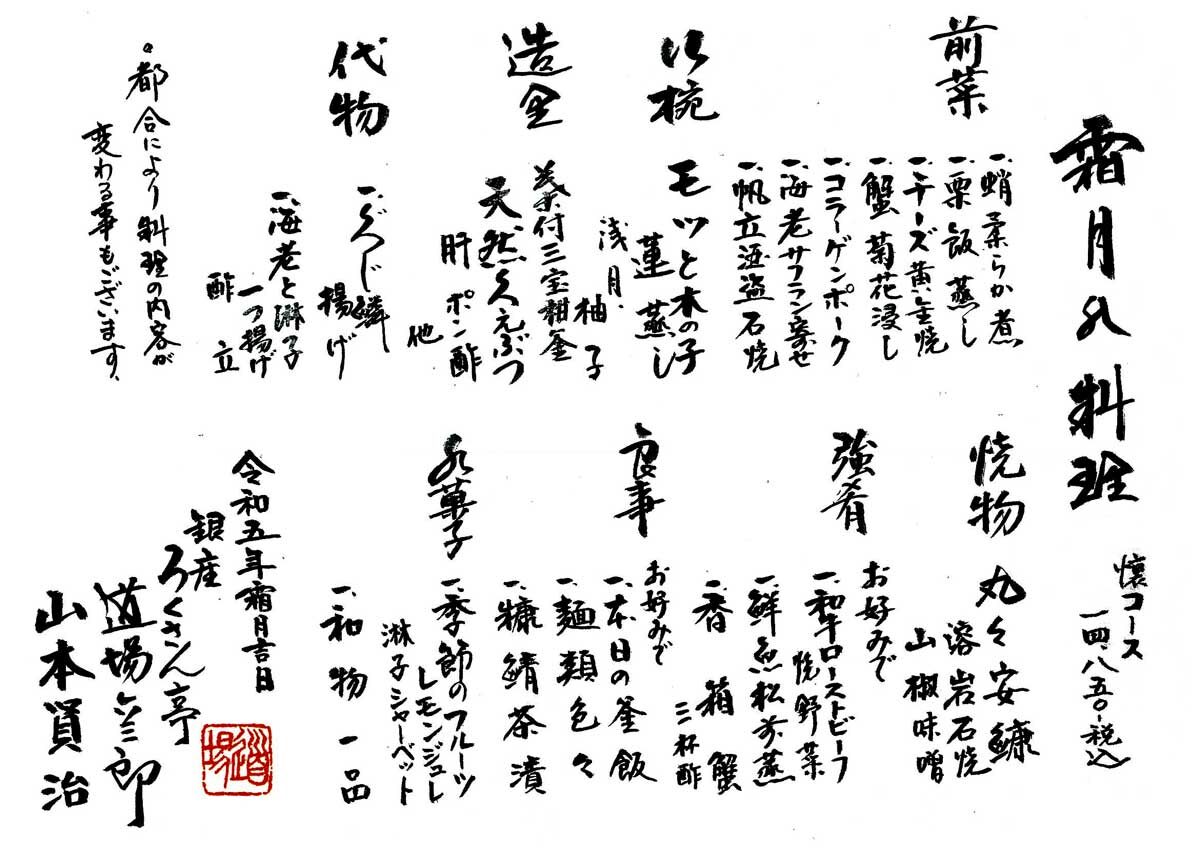 霜月の料理
懐コース
一四、八五〇-税込
前菜
一、蛸柔らか煮
一、栗飯蒸し
一、チーズ黄金焼
一、蟹菊花浸し
一、コラーゲンポーク
一、海老サフラン寄せ
一、帆立酒盗石焼
沢椀
モツと木の子
蓮蒸し
浅月、柚子
造里
茶付三宝柑釜
天然くえぶつ
肝ポン酢
他
代物
一、ぐじ鱗
揚げ
一、海老と淋子
一つ揚げ
酢立
〃都合により料理の内容が
変わる事もございます、
焼物
丸々安鱇
溶岩石焼
山椒味噌
強肴
お好みで
一、和牛ローストビーフ
焼野菜
一、鮮魚松前蒸
一、香箱蟹
三杯酢
食事
お好みで
一、本日の釜飯
一、麺類色々
一、糠鯖茶漬
水菓子
一、季節のフルーツ
レモンジュレ
淋子シャーベット
一、和物一品
令和五年霜月吉日
銀座
ろくさん亭
道場六三郎
山本賢治
道場